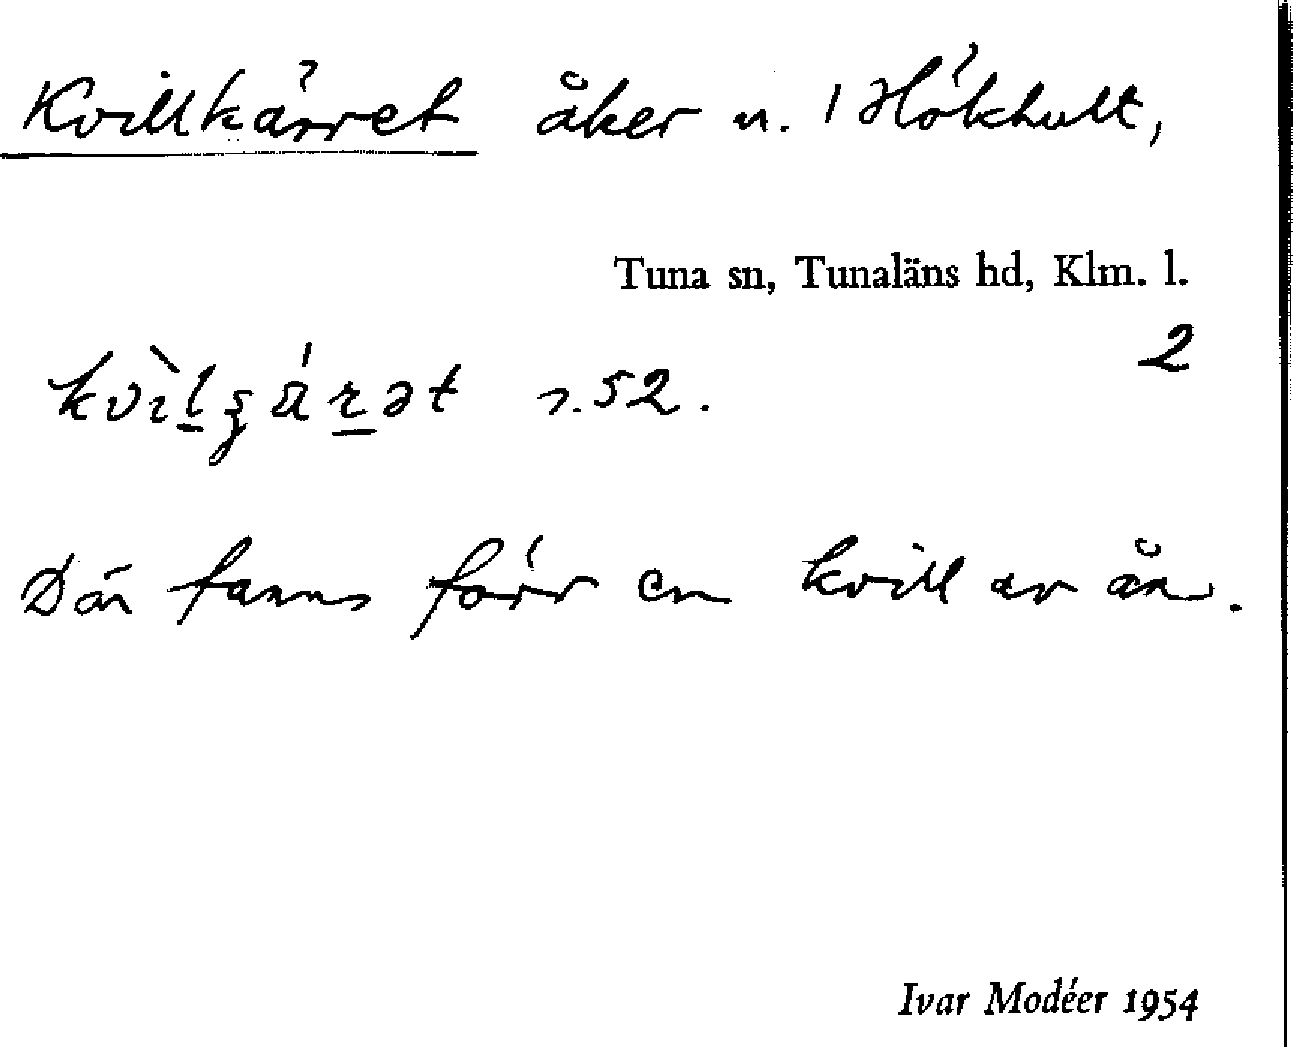 Kvillkärret åker u. 1 Hökhult,
Tuna sn, Tunaläns hd, Klm. l.
2
s. 52.
Där fanns förr en kvill av ån.
Ivar Modéer 1954